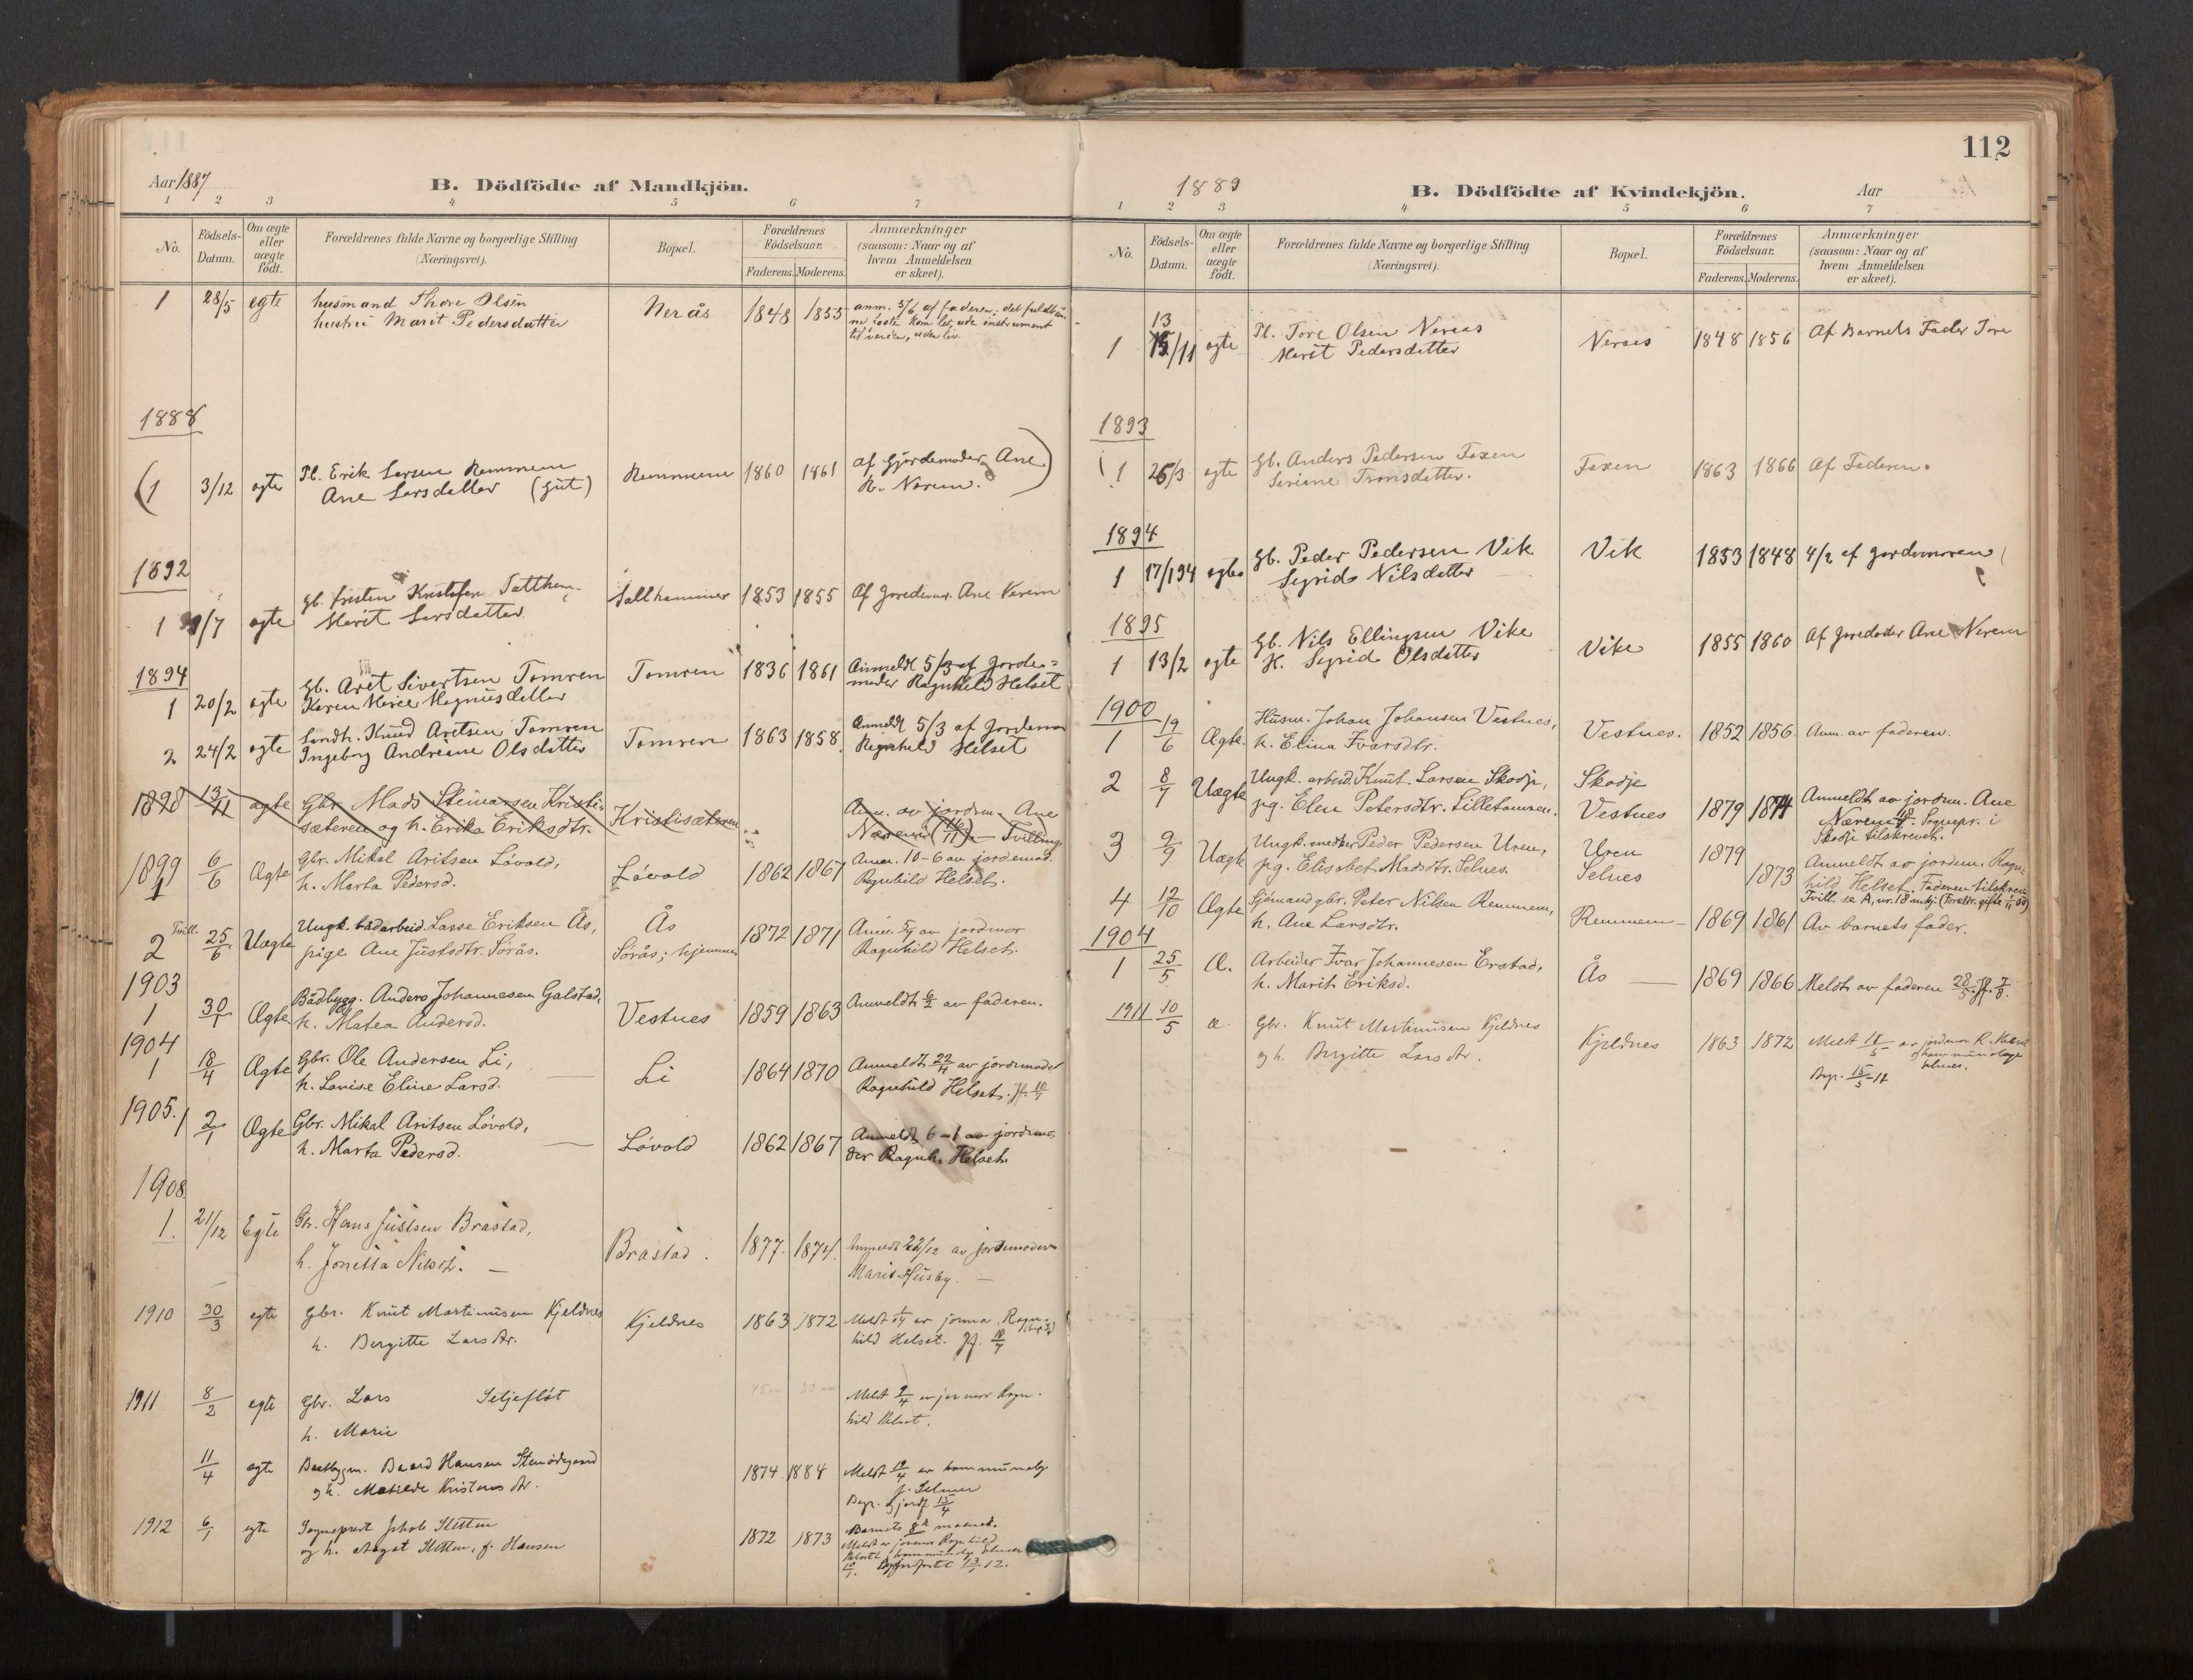 112
Aar 1887
B. Dödfödte af Mandkjön.
1 2 3 4 5 6 7
No.
Födsels-Datum.
Om ægte eller uægte födt.
Forældrenes fulde Navne og borgerlige Stilling (Næringsvei).
Bopæl.
Forældrenes Födselsaar.
Faderens. Moderens.
Anmærkninger (saasom: Naar og af hvem Anmeldelsen er skeet).
1 28/5 egte husmand Thore Olsen Nerås 1848 1855 anm. 5/6 af faderen;
hustru Marit Pedersdatter
til verden, uden liv.
1888
(1 3/12 egte Pl. Erik Larsen Remmem Remmem 1860 1861 af Gjordemoder Ane
Ane Larsdatter (gut) K. Nerem.)
1892
1 /7 egte Gb. Kristen Kristofersen 1853 1855 Af Jordemor. Ane Nerem
Marit Larsdatter
1894
1 20/2 egte Gb. Aret Sivertsen Tomren Tomren 1836 1861 Anmeldt 5/3 af Jorde=
Karen Marie Magnusdatter moder Ragnhild Helset
2 24/2 egte Landh. Knud Aretsen Tomren Tomren 1863 1858 Anmeldt 5/3 af Jordemor
Ingeborg Andreine Olsdatter Ragnhild Helset
1898 13/11 ægte Gbr. Mads Steinarsen Kristi- Kristisæteren Anm. av jordm. Ane
sæteren og h. Erika Eriksdtr. Nærem (16/11) — Tvilling
1899
1 6/6 Ægte Gbr. Mikal Aritsen Lövold, Lövold 1862 1867 Anm. 10-6 av jordemod.
h. Marta Pedersd. Ragnhild Helset.
2 Tvill. 25/6 Uægte Ungk. bådarbeid. Lasse Eriksen Ås, Ås 1872 1871 Anm. av jordmor
pige Ane Justsdtr. Sörås. Sörås; hjemme Ragnhild Helset.
1903
1 30/1 Ægte Bådbygg. Anders Johannesen Galstad, Vestnes 1859 1863 Anmeldt 6/2 av faderen.
h. Matea Andersd.
1904
1 18/4 Ægte Gbr. Ole Andersen Li, — Li 1864 1870 Anmeldt 22/4 av jordemoder
h. Lovise Eline Larsd. Ragnhild Helset.
1905.
1 2/1 Ægte Gbr. Mikal Aritsen Lövold, — Lövold 1862 1867 Anmeldt 6-1 av jordemo-
h. Marta Pedersd. der Ragnh. Helset.
1908
1. 21/12 Egte Gbr. Hans Justsen Brastad, Brastad. 1877. 1874. Anmeldt 22/12 av jordemoder
h. Jonetta Nilsd. — Marit Husby. —
1910 30/3 egte Gbr. Knut Martinusen Kjeldnes Kjeldnes 1863 1872 Meldt av jormor Ragn-
h. Bergitte Larsdtr. hild Helset.
1911 8/2 egte Gbr. Lars Seljeflöt Meldt 9/4 av jormor Ragn-
h. Marie hild Helset.
11/4 egte Baatbygm. Baard Hansen 1874 1884 Meldt 12/4 av
og h. Matilde Kristensdtr.
15/4
1912 6/1 egte Sogneprest Jakob 1872 1873 Barnets 8de maaned.
og h. f. Hansen Meldt av jormor Ragnhild
13/1 12.
1889
B. Dödfödte af Kvindekjön.
Aar
1 2 3 4 5 6 7
No.
Födsels-Datum.
Om ægte eller uægte födt.
Forældrenes fulde Navne og borgerlige Stilling (Næringsvei).
Bopæl.
Forældrenes Födselsaar.
Faderens. Moderens.
Anmærkninger (saasom: Naar og af hvem Anmeldelsen er skeet).
13
1 15/11 egte Pl. Tore Olsen Neraas Neraas 1848 1856 Af Barnets Fader Tore
Marit Pedersdatter
1893
1 26/3 egte Gb. Anders Pedersen Faxen Faxen 1863 1866 Af Faderen.
Seriane Tronsdatter.
1894
1 17/1 94 egte Gb. Peder Pedersen Vik Vik 1853 1848 4/2 af Jordemoren
Sigrid Nilsdatter
1895
1 13/2 egte Gb. Nils Ellingsen Vike Vike 1855 1860 Af Ane Nerem
H. Sigrid Olsdatter
1900
1 19/6 Ægte. Husm. Johan Johansen Vestnes, Vestnes. 1852 1856 Anm. av faderen.
h. Elina Ivarsdtr.
2 8/7 Uægte Ungk. arbeid. Knut Larsen Skodje, Skodje
pig. Elen Petersdtr. Lilletomren. Vestnes 1879 1874 Anmeldt av jordm. Ane
Nærem. Sognepr. i
Skodje tilskrevet.
3 9/9 Uægte Ungk. snedker Peder Pedersen Uren, Uren 1879
pig. Elisabet Madsdtr. Selnes. Selnes 1873 Anmeldt av jordem. Ragn-
hild Helset. Faderen tilskrev.
Tvill. se A, nr. 18 mkj. (Foreldr. gifte 1/11 00)
4 12/10 Ægte Sjömand gbr. Peter Nilsen Remmem, Remmem — 1869 1861 Av barnets fader.
h. Ane Larsdtr.
1904
1 25/5 Æ. Arbeider Ivar Johannesen Erstad, Ås — 1869 1866 Meldt av faderen 28/5. Jf. 7/8.
h. Marit Eriksd.
1911 10/5 æ. Gbr. Knut Martinusen Kjeldnes Kjeldnes 1863 1872 Meldt 18/5 av jordmor R. Helset
og h. Bergitte Larsdtr.
Begr. 15/5-11